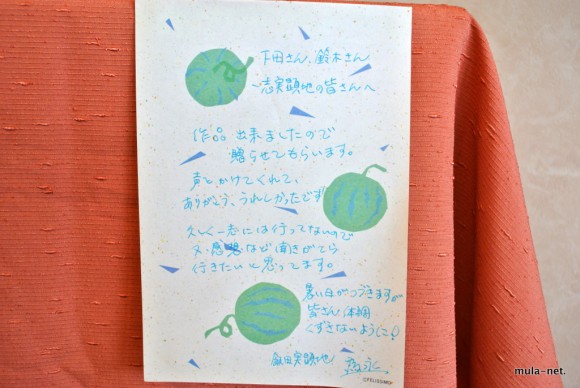 下田さん、鈴木さん
一志実顕地の皆さんへ
作品 出来ましたので
贈らせてもらいます。
声をかけてくれて、
ありがとう、うれしかったです
久しく一志には行ってないので
又・感想など聞きがてら
行きたいと思ってます。
暑い日がつづきますが
皆さん体調
くずさないように!
飯田実顕地
©FELISSIMO
mula-net.